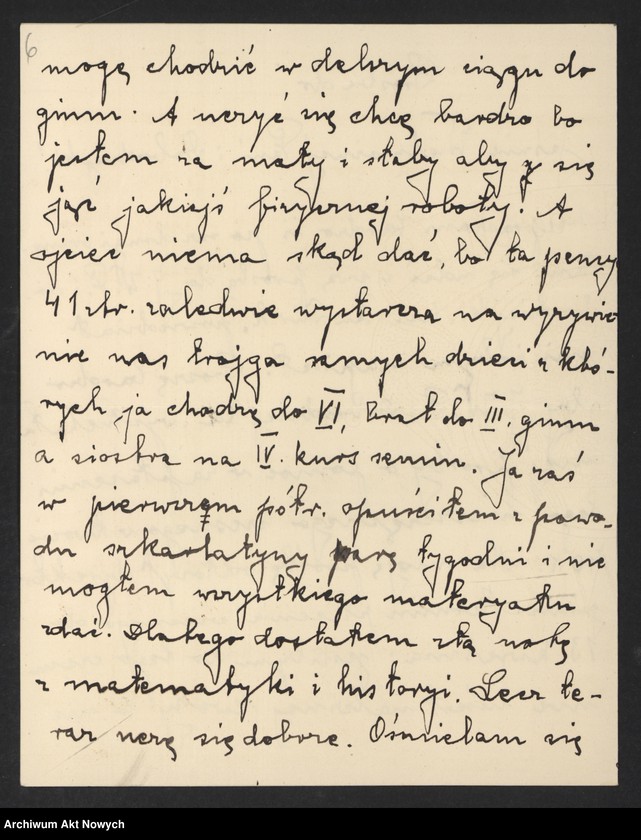 6
mogę chodzić w dalszym ciągu do
gimn. A uczyć się chcę bardzo bo
jestem za mały i słaby aby się
jąć jakiejś fizycznej roboty! A
ojciec niema skąd dać, bo ta pensy
41 złr. zaledwie wystarcza na wyżywie
nie nas trojga samych dzieci z któ-
rych ja chodzę do VI, brat do III. gimn
a siostra na IV. kurs semin. Ja zaś
w pierwszem półr. opuściłem z powo-
du szkarlatyny parę tygodni i nie
mogłem wszystkiego materyału
zdać. Dlatego dostałem złą notę
z matematyki i historyi. Lecz te-
raz uczę się dobrze. Ośmielam się
Archiwum Akt Nowych